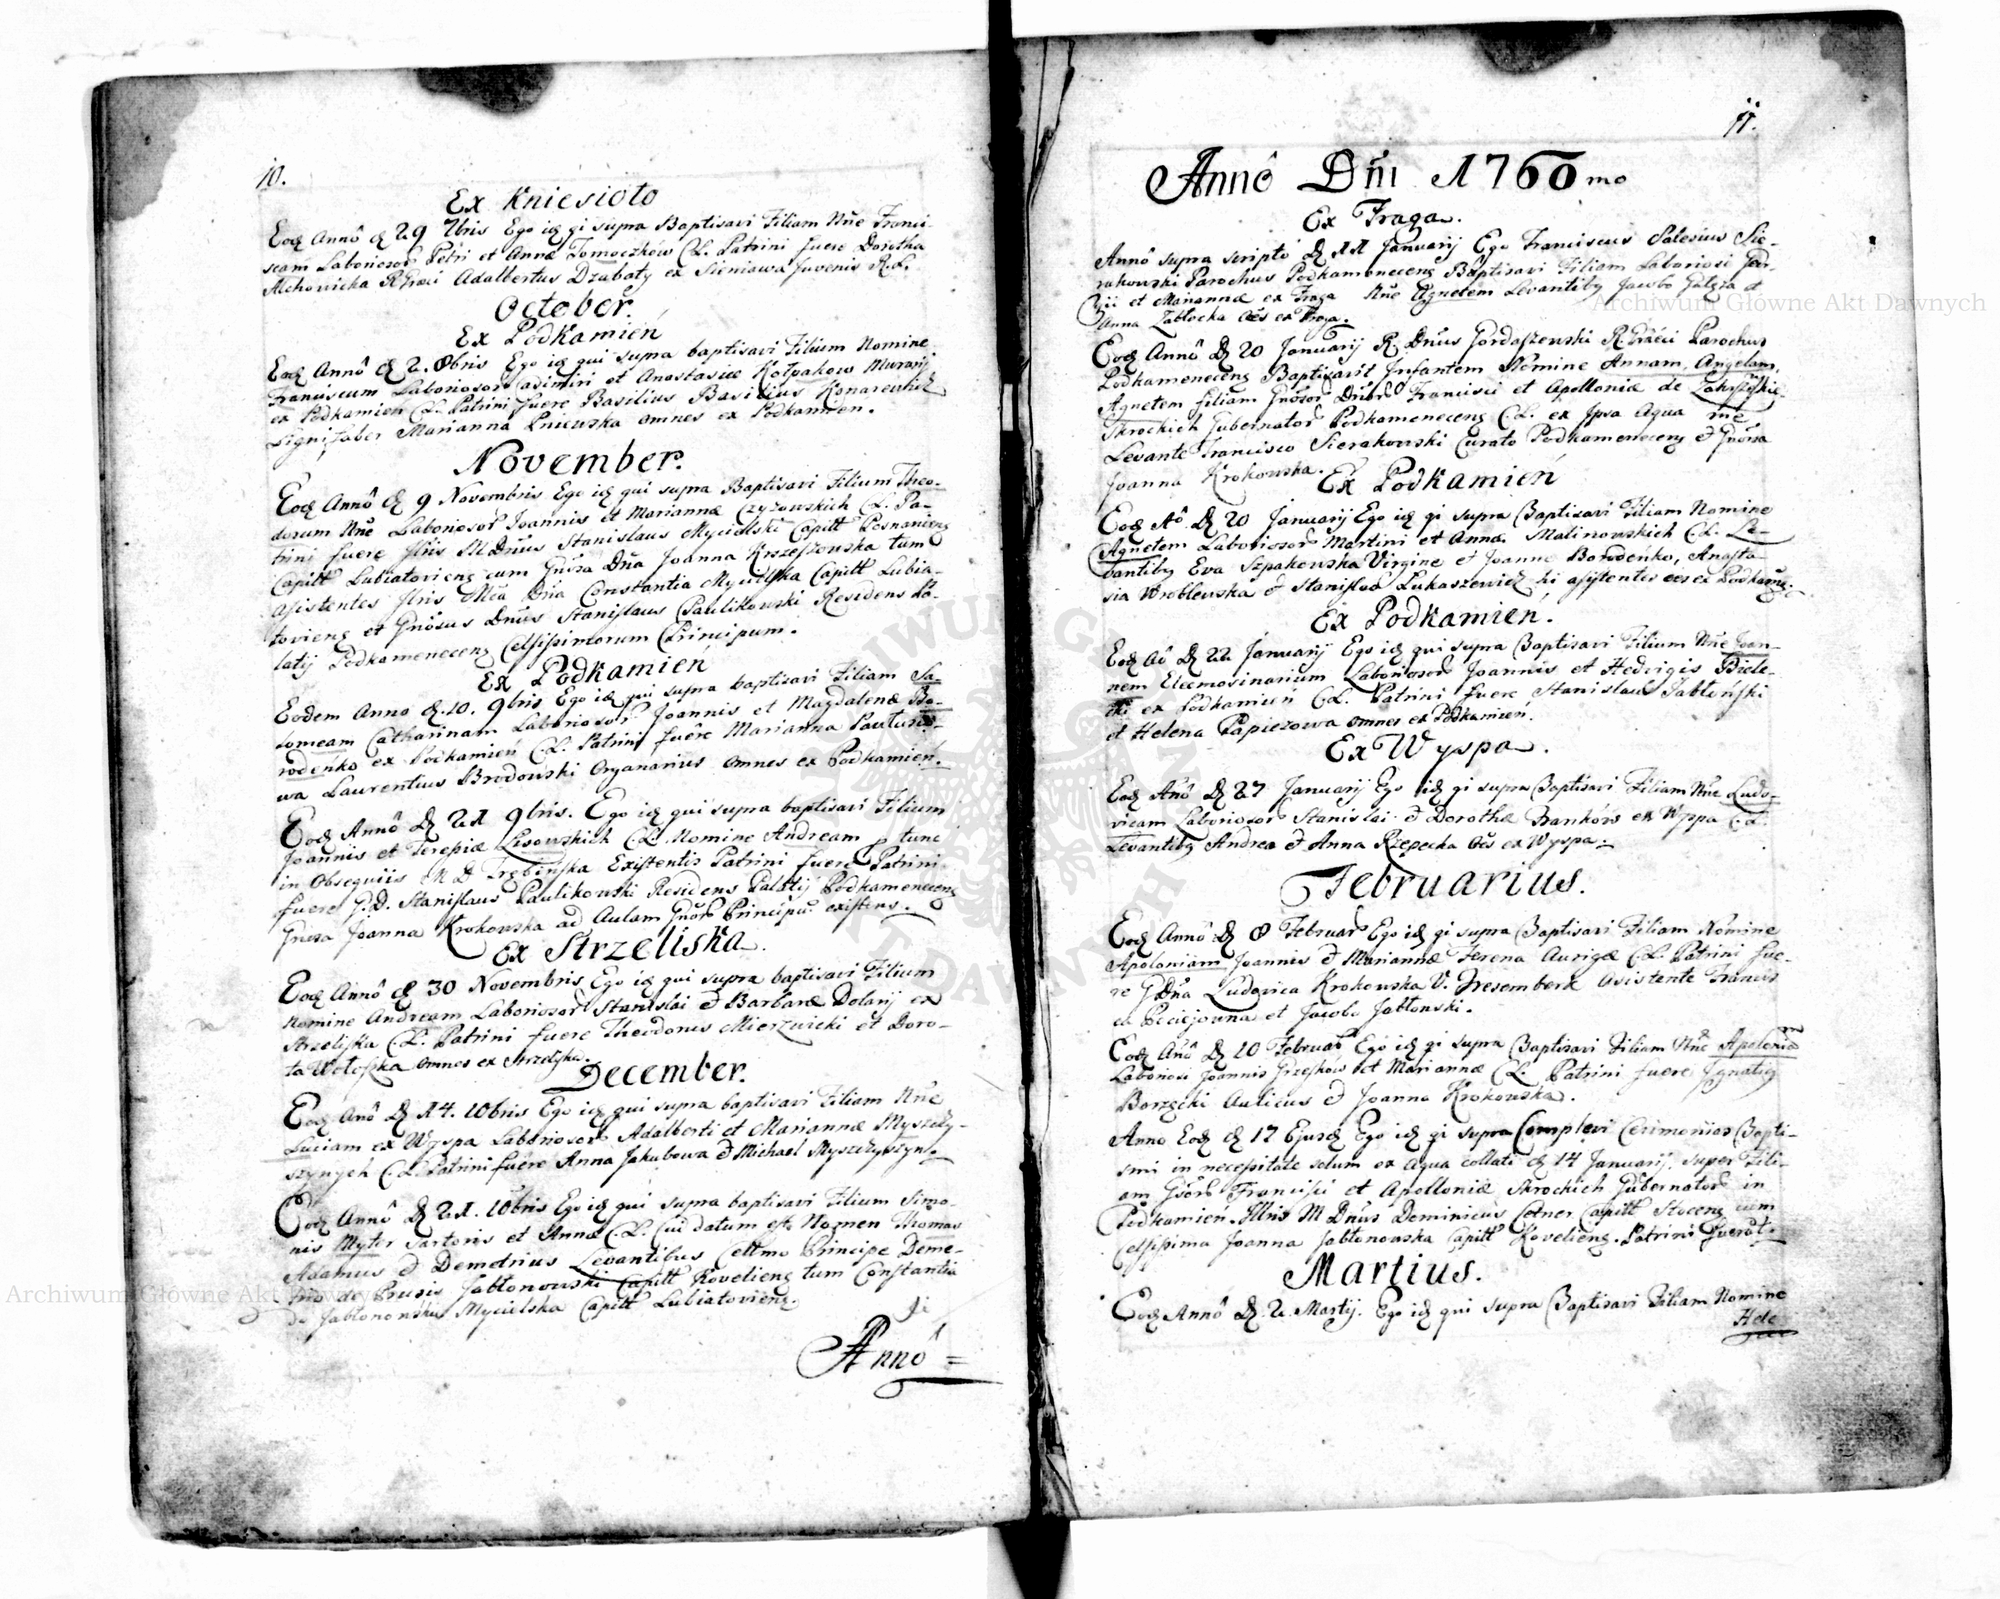 10.
Ex Kniesioło
Eodem Annô d 29 7bris Ego id qi supra Baptisavi Filiam Nne Franci-
scam Laboriosor Petri et Annæ Tomaczków C.L. Patrini fuere Dorotha
Alchowicka Adalbertus Dzubaty ex Sieniawa Juvenis R.L.
October.
Ex Podkamień
Eod Annô d 2. 8bris Ego id qui supra baptisavi Filium Nomine
Franciscum Laboriosor Casimiri et Anastasiæ Kołpaków Murarij
ex Podkamien C.L. Patrini fuere Basilius Basilius
Lignifaber Marianna Pniewska omnes ex Podkamien.
November.
Eod Annô d 9 Novembris Ego id qui supra Baptisavi Filium Theo-
dorum Nne Laboriosor Joannis et Mariannæ Czyżowskich C.L. Pa-
trini fuere Illris M Dnus Stanislaus Mycielski Capitt Posnaniens
Capitt Lubiatoviens cum Gnosa Dna Joanna Krzeszowska tum
Assistentes Illris Mca Dna Constantia Mycielska Capitt Lubia-
toviens et Gnosus Dnus Stanislaus Paulikowski Residens Pa-
latij Podkamenecens Celsissimorum Principum.
Ex Podkamień
Eodem Anno d. 10. 9bris Ego id qui supra baptisavi Filiam Sa-
lomeam Catharinam Laboriosor Joannis et Magdalenæ Bo-
rodeńko ex Podkamień C.L. Patrini fuere Marianna
wa Laurentius Brodowski Organarius omnes ex Podkamień.
Eod Annô d 21 9bris. Ego id qui supra baptisavi Filium
Joannis et Teresiæ Lisowskich C.L. Nomine Andream p tunc
in Obsequiis M D Trębińska Existentis Patrini fuere Patrini
fuere G.D. Stanislaus Paulikowski Residens Palatij Podkamenecens
Gnosa Joanna Krokowska ad Aulam Gnor Principu existens.
Ex Strzeliska
Eod Annô d 30 Novembris Ego id qui supra baptisavi Filium
Nomine Andream Laboriosor Stanislai & Barbaræ Dolary ex
Strzeliska C.L. Patrini fuere Theodorus Mierzwicki et Doro-
ta Wołoska omnes ex Strzeliska.
December.
Eod Anô d 14. 10bris Ego id qui supra baptisavi Filiam Nne
Luciam ex Wyspa Laboriosor Adalberti et Mariannæ Myszeły-
szynych C.L. Patrini fuere Anna Jakubowa & Michael Myszełyszyn.
Eod Annô d 21. 10bris Ego id qui supra baptisavi Filium Simo-
nis Myter Sartoris et Annæ C.L. Cui datum est Nomen Thomas
Adamus & Demetrius Levantibus Celtmo Principe Deme-
trio de Prusis Jabłonowski Capitt Koveliens tum Constantia
de Jabłonowskie Mycielska Capitt Lubiatoviens.
Annô =
11.
Annô Dni 1760mo
Ex Fraga.
Annô supra scripto d 11 Januarij Ego Franciscus Salesius Sie-
rakowski Parochus Podkamenecens Baptisavi Filiam Laboriosi
et Mariannæ ex Fraga Nne Agnetem Levantibus Jacobo Gałęza et
Anna Zabłocka oes ex Fraga.
Eod Annô d 20 Januarij R. Dnus Gordaszewski R. Græci Parochus
Podkamenecens Baptizavit Infantem Nomine Annam, Angelam,
Agnetem filiam Gnosor Dnor Francisci et Apolloniæ de
Skrockich Gubernator Podkamenecens C.L. ex Ipsa Aqua me
Levante Francisco Sierakowski Curato Podkamenecens & Gnosa
Joanna Krokowska.
Ex Podkamień
Eod Aô d 20 Januarij Ego id qi supra Baptisavi Filiam Nomine
Agnetem Laboriosor Martini et Annæ Malinowskich C.L. Le-
vantibus Eva Szpakowska Virgine & Joanne Borodeńko, Anasta-
sia Wroblewska & Stanislao Lukaszewicz hi assistentes oes ex Podkamn.
Ex Podkamień.
Eod Aô d 22 Januarij Ego id qui supra Baptisavi Filium Nne Joan-
nem Eleemosinarium Laboriosor Joannis et Hedvigis Biele-
cki ex Podkamień C.L. Patrini fuere Stanislaus Jabłonski
et Helena Papieżowa omnes ex Podkamień.
Ex Wyspa.
Eod Anô d 27 Januarij Ego id qi supra Baptisavi Filiam Nne Ludo-
vicam Laboriosor Stanislai & Dorothæ Franków ex Wyspa C.L.
Levantibus Andrea & Anna Rzepecka oes ex Wyspa.
Februarius.
Eod Annô d 8 Februar Ego id qi supra Baptisavi Filiam Nomine
Apoloniam Joannis & Mariannæ Ferena Aurigæ C.L. Patrini fue-
re G Dna Ludovica Krokowska V. Assistente Francis
ca et Jacobo Jabłonski.
Eod Anô d 10 Februar Ego id qi supra Baptisavi Filiam Nne Apolonia
Laboriosi Joannis Grzesków et Mariannæ C.L. Patrini fuere Ignatius
Borzęcki Aulicus & Joanna Krokowska.
Anno Eod d 17 Ejusd Ego id qi supra Complevi Cerimonias Bapti-
smi in necessitate solum ex Aqua collati d 14 Januarij super Fili-
am Gsor Francisci et Apolloniæ Skrockich Gubernator in
Podkamień. Illris M Dnus Dominicus Cetner Capitt Stocens cum
Celsissima Joanna Jabłonowska Capitt Koveliens. Patrini fuerôt.
Martius.
Eod Annô d. 2. Martij. Ego id qui supra Baptisavi Filiam Nomine
Hele
Archiwum Główne Akt Dawnych
Archiwum Główne Akt Dawnych